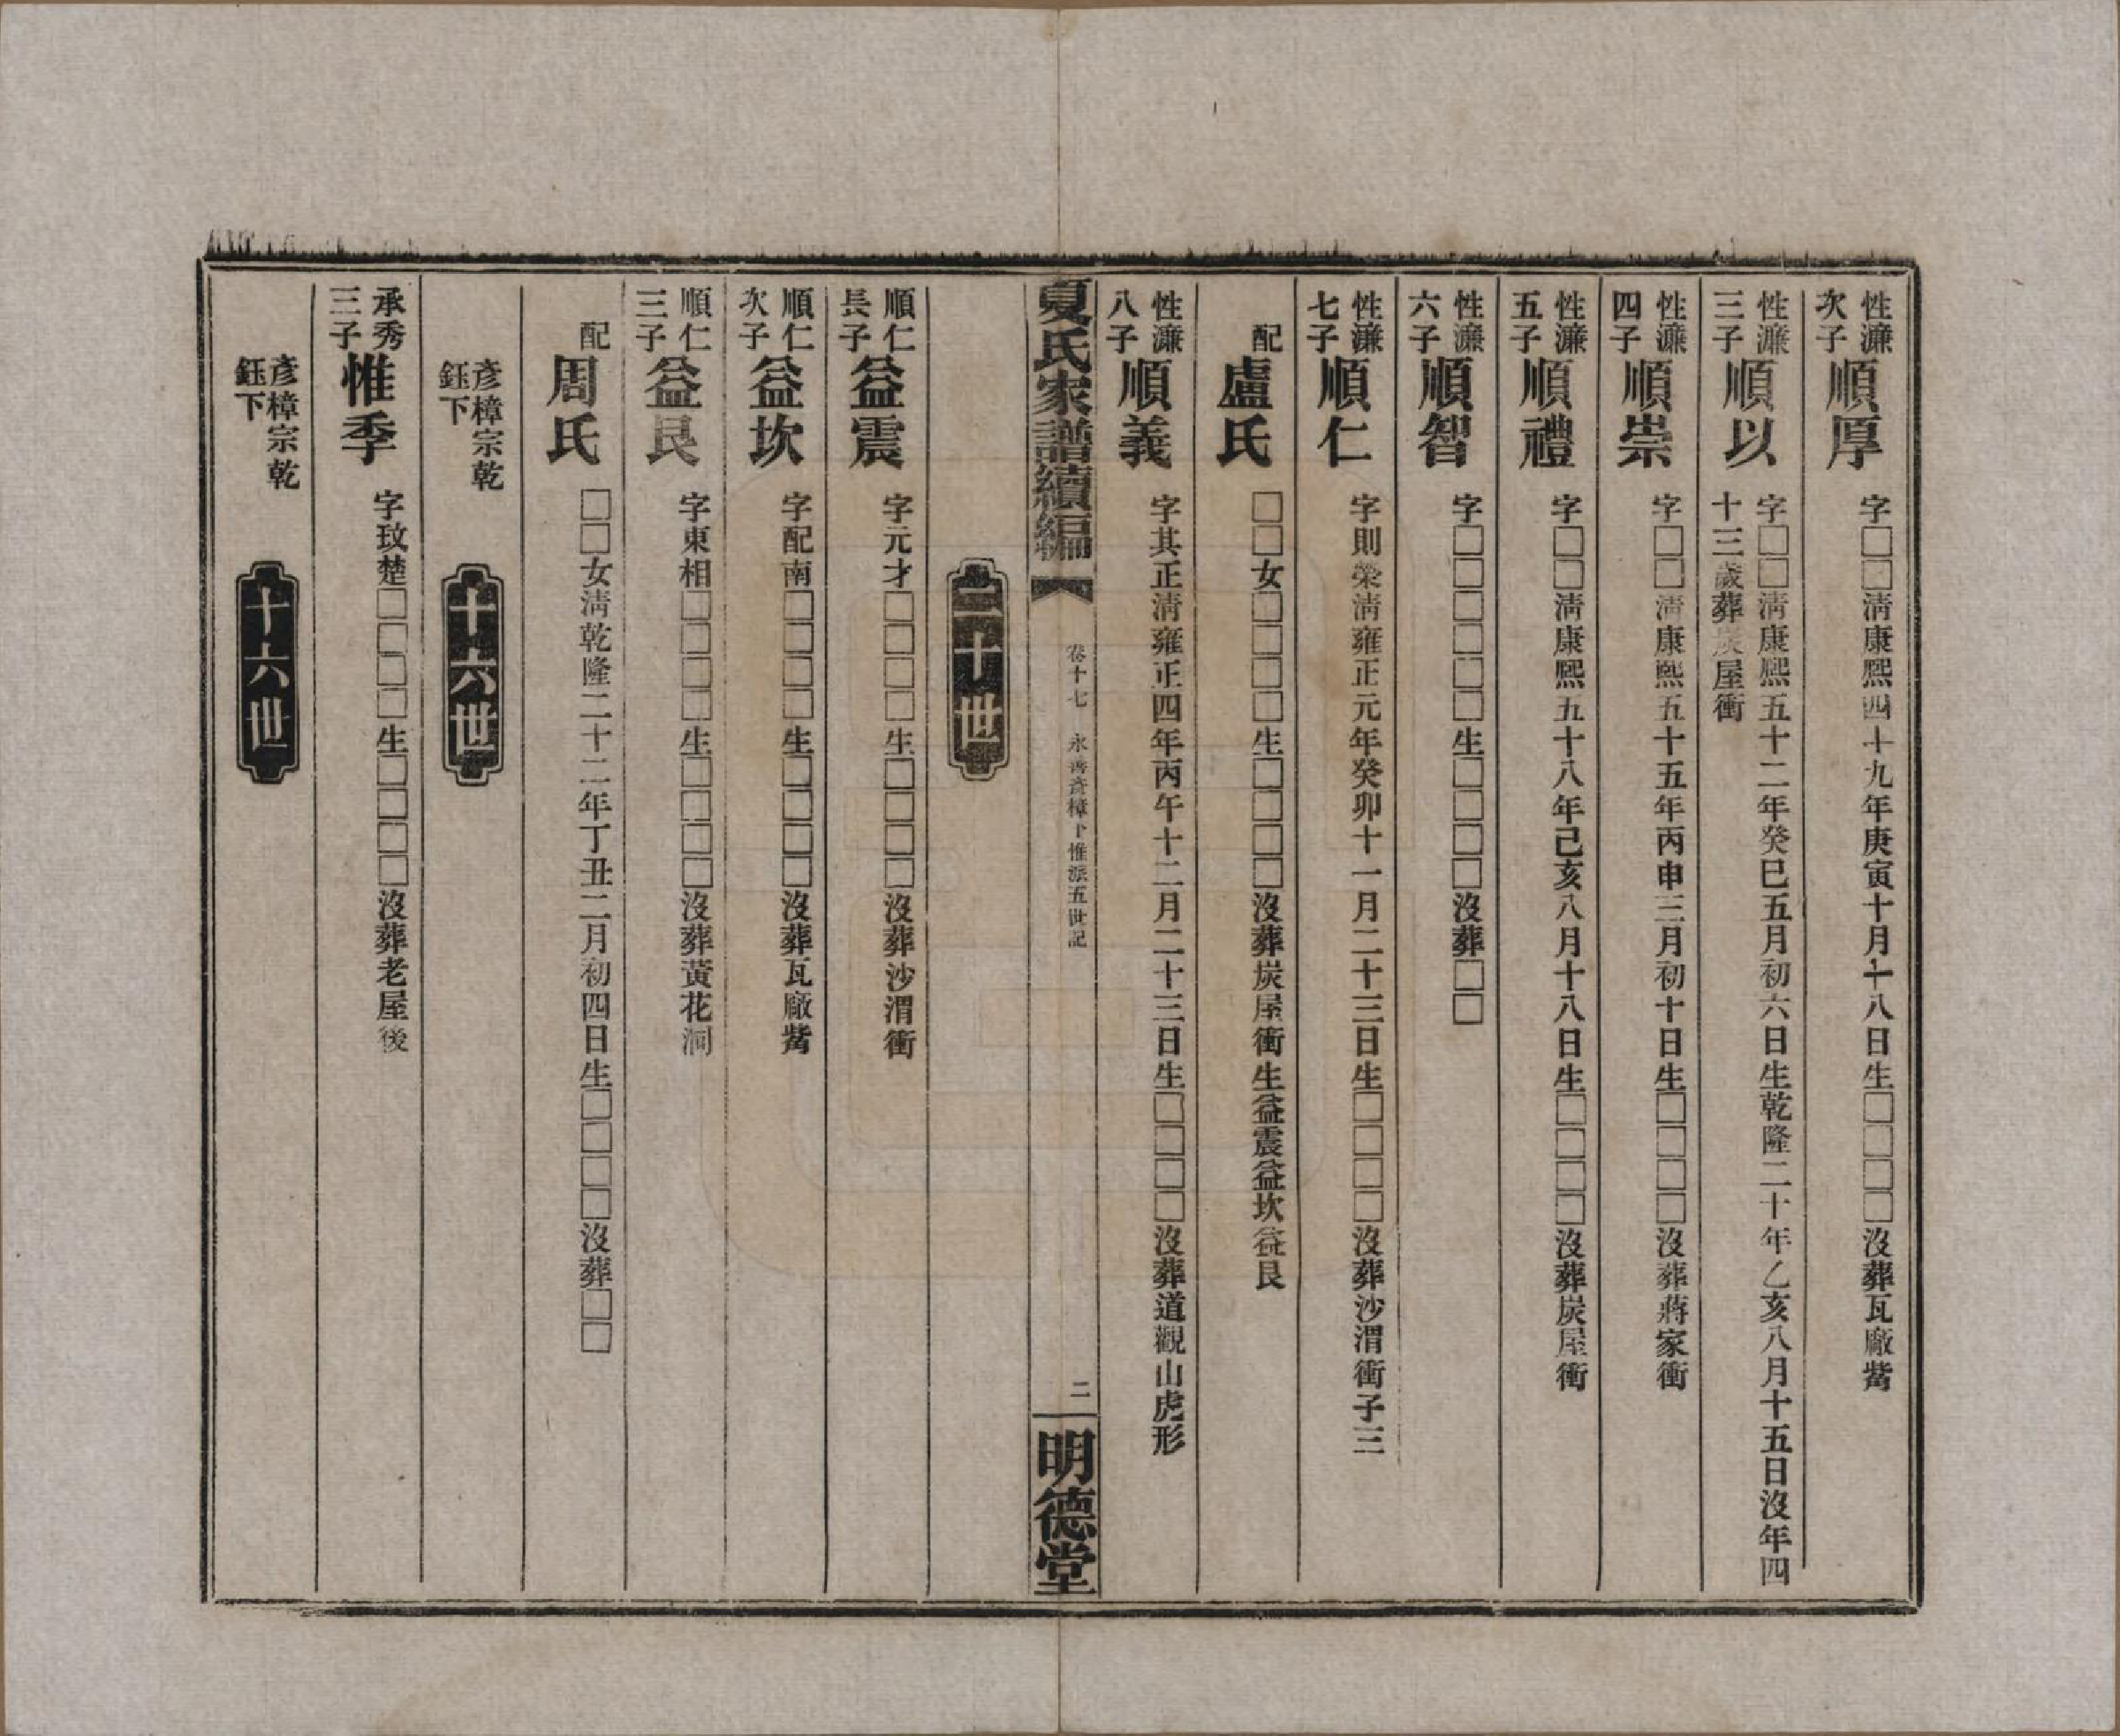 性濂次子順厚字□□淸康熙四十九年庚寅十月十八日生□□□□沒葬瓦廠觜
性濂三子順以字□□淸康熙五十二年癸巳五月初六日生乾隆二十年乙亥八月十五日沒年四
十三歲葬炭屋衝
性濂四子順崇字□□淸康熙五十五年丙申三月初十日生□□□□沒葬蔣家衝
性濂五子順禮字□□淸康熙五十八年己亥八月十八日生□□□□沒葬炭屋衝
性濂六子順智字□□□□□□生□□□□沒葬□□
性濂七子順仁字則榮淸雍正元年癸卯十一月二十三日生□□□□沒葬沙渭衝子三
配盧氏□□女□□□□生□□□□沒葬炭屋衝生益震益坎益艮
性濂八子順義字其正淸雍正四年丙午十二月二十三日生□□□□沒葬道觀山虎形
夏氏家譜續編 卷十七 永 彥樟下惟派五世記 二 明德堂
二十世
順仁長子益震字元才□□□□生□□□□沒葬沙渭衝
順仁次子益坎字配南□□□□生□□□□沒葬瓦廠觜
順仁三子益艮字東相□□□□生□□□□沒葬黃花洞
配周氏□□女淸乾隆二十二年丁丑二月初四日生□□□□沒葬□□
彥樟宗乾鈺下 十六世
承秀三子惟季字玟楚□□□□生□□□□沒葬老屋後
彥樟宗乾鈺下 十六世